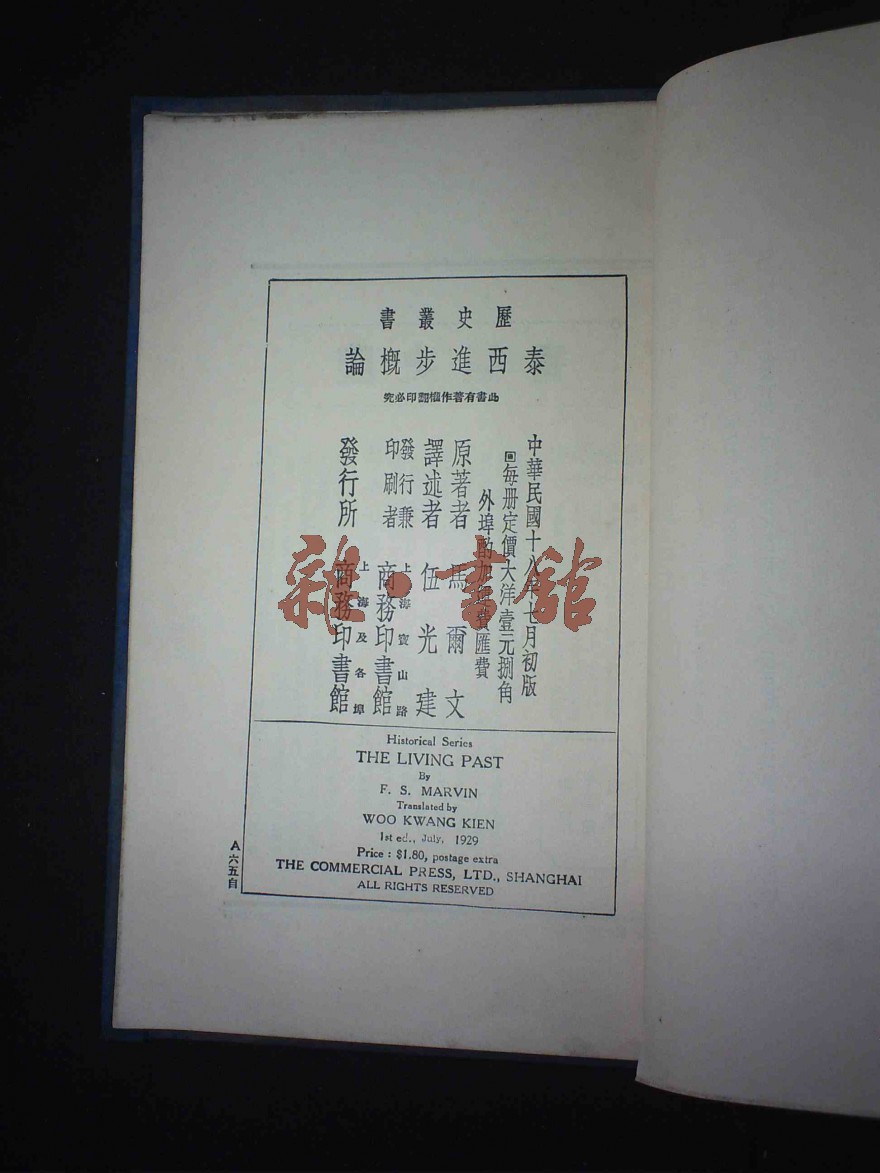 歷史叢書
泰西進步概論
此書有著作權翻印必究
中華民國十八年七月初版
回每册定價大洋壹元捌角
外埠酌加運費匯費
原著者 馬爾文
譯述者 伍光建
發行兼印刷者 上海寶山路 商務印書館
發行所 上海及各埠 商務印書館
Historical Series
THE LIVING PAST
By
F. S. MARVIN
Translated by
WOO KWANG KIEN
1st ed., July, 1929
Price : $1.80, postage extra
THE COMMERCIAL PRESS, LTD., SHANGHAI
ALL RIGHTS RESERVED
A六五自
雜·書館